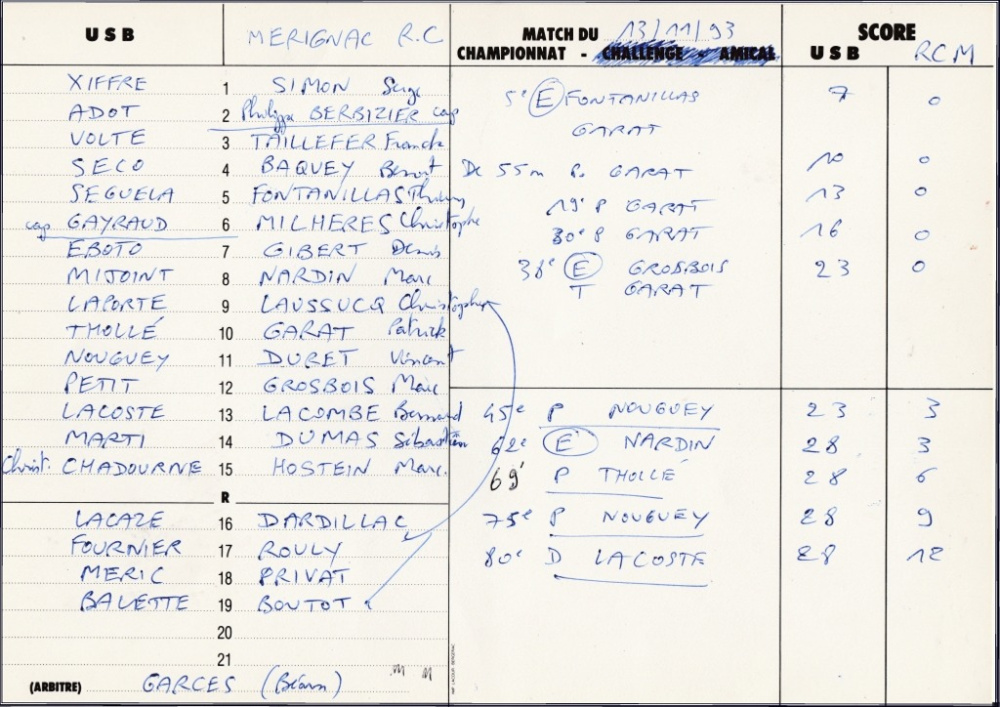 USB MERIGNAC R.C
XIFFRE 1 SIMON Serge
ADOT 2 Philippe BERBIZIER cap
VOLTE 3 TAILLEFER Franck
SECO 4 BAQUEY Benoit
SEGUELA 5 FONTANILLAS Thierry
cap GAYRAUD 6 MILHERES Christophe
EBOTO 7 GIBERT Denis
MIJOINT 8 NARDIN Marc
LAPORTE 9 LAUSSUCQ Christophe
THOLLÉ 10 GARAT Patrick
NOUGUEY 11 DURET Vincent
PETIT 12 GROSBOIS Marc
LACOSTE 13 LACOMBE Bernard
MARTI 14 DUMAS Sébastien
Christ. CHADOURNE 15 HOSTEIN Marc.
R
LACAZE 16 DARDILLAC
FOURNIER 17 ROULY
MERIC 18 PRIVAT
BALETTE 19 BOUTOT
20
21
(ARBITRE) GARCES (Béarn)
MATCH DU 13/11/93
CHAMPIONNAT - CHALLENGE - AMICAL
SCORE
USB RCM
5e E FONTANILLAS 7 0
GARAT
De 55m P. GARAT 10 0
19e P GARAT 13 0
30e P GARAT 16 0
38e E GROSBOIS 23 0
T GARAT
45e P NOUGUEY 23 3
62e E NARDIN 28 3
69' P THOLLÉ 28 6
75e P NOUGUEY 28 9
80e D LACOSTE 28 12